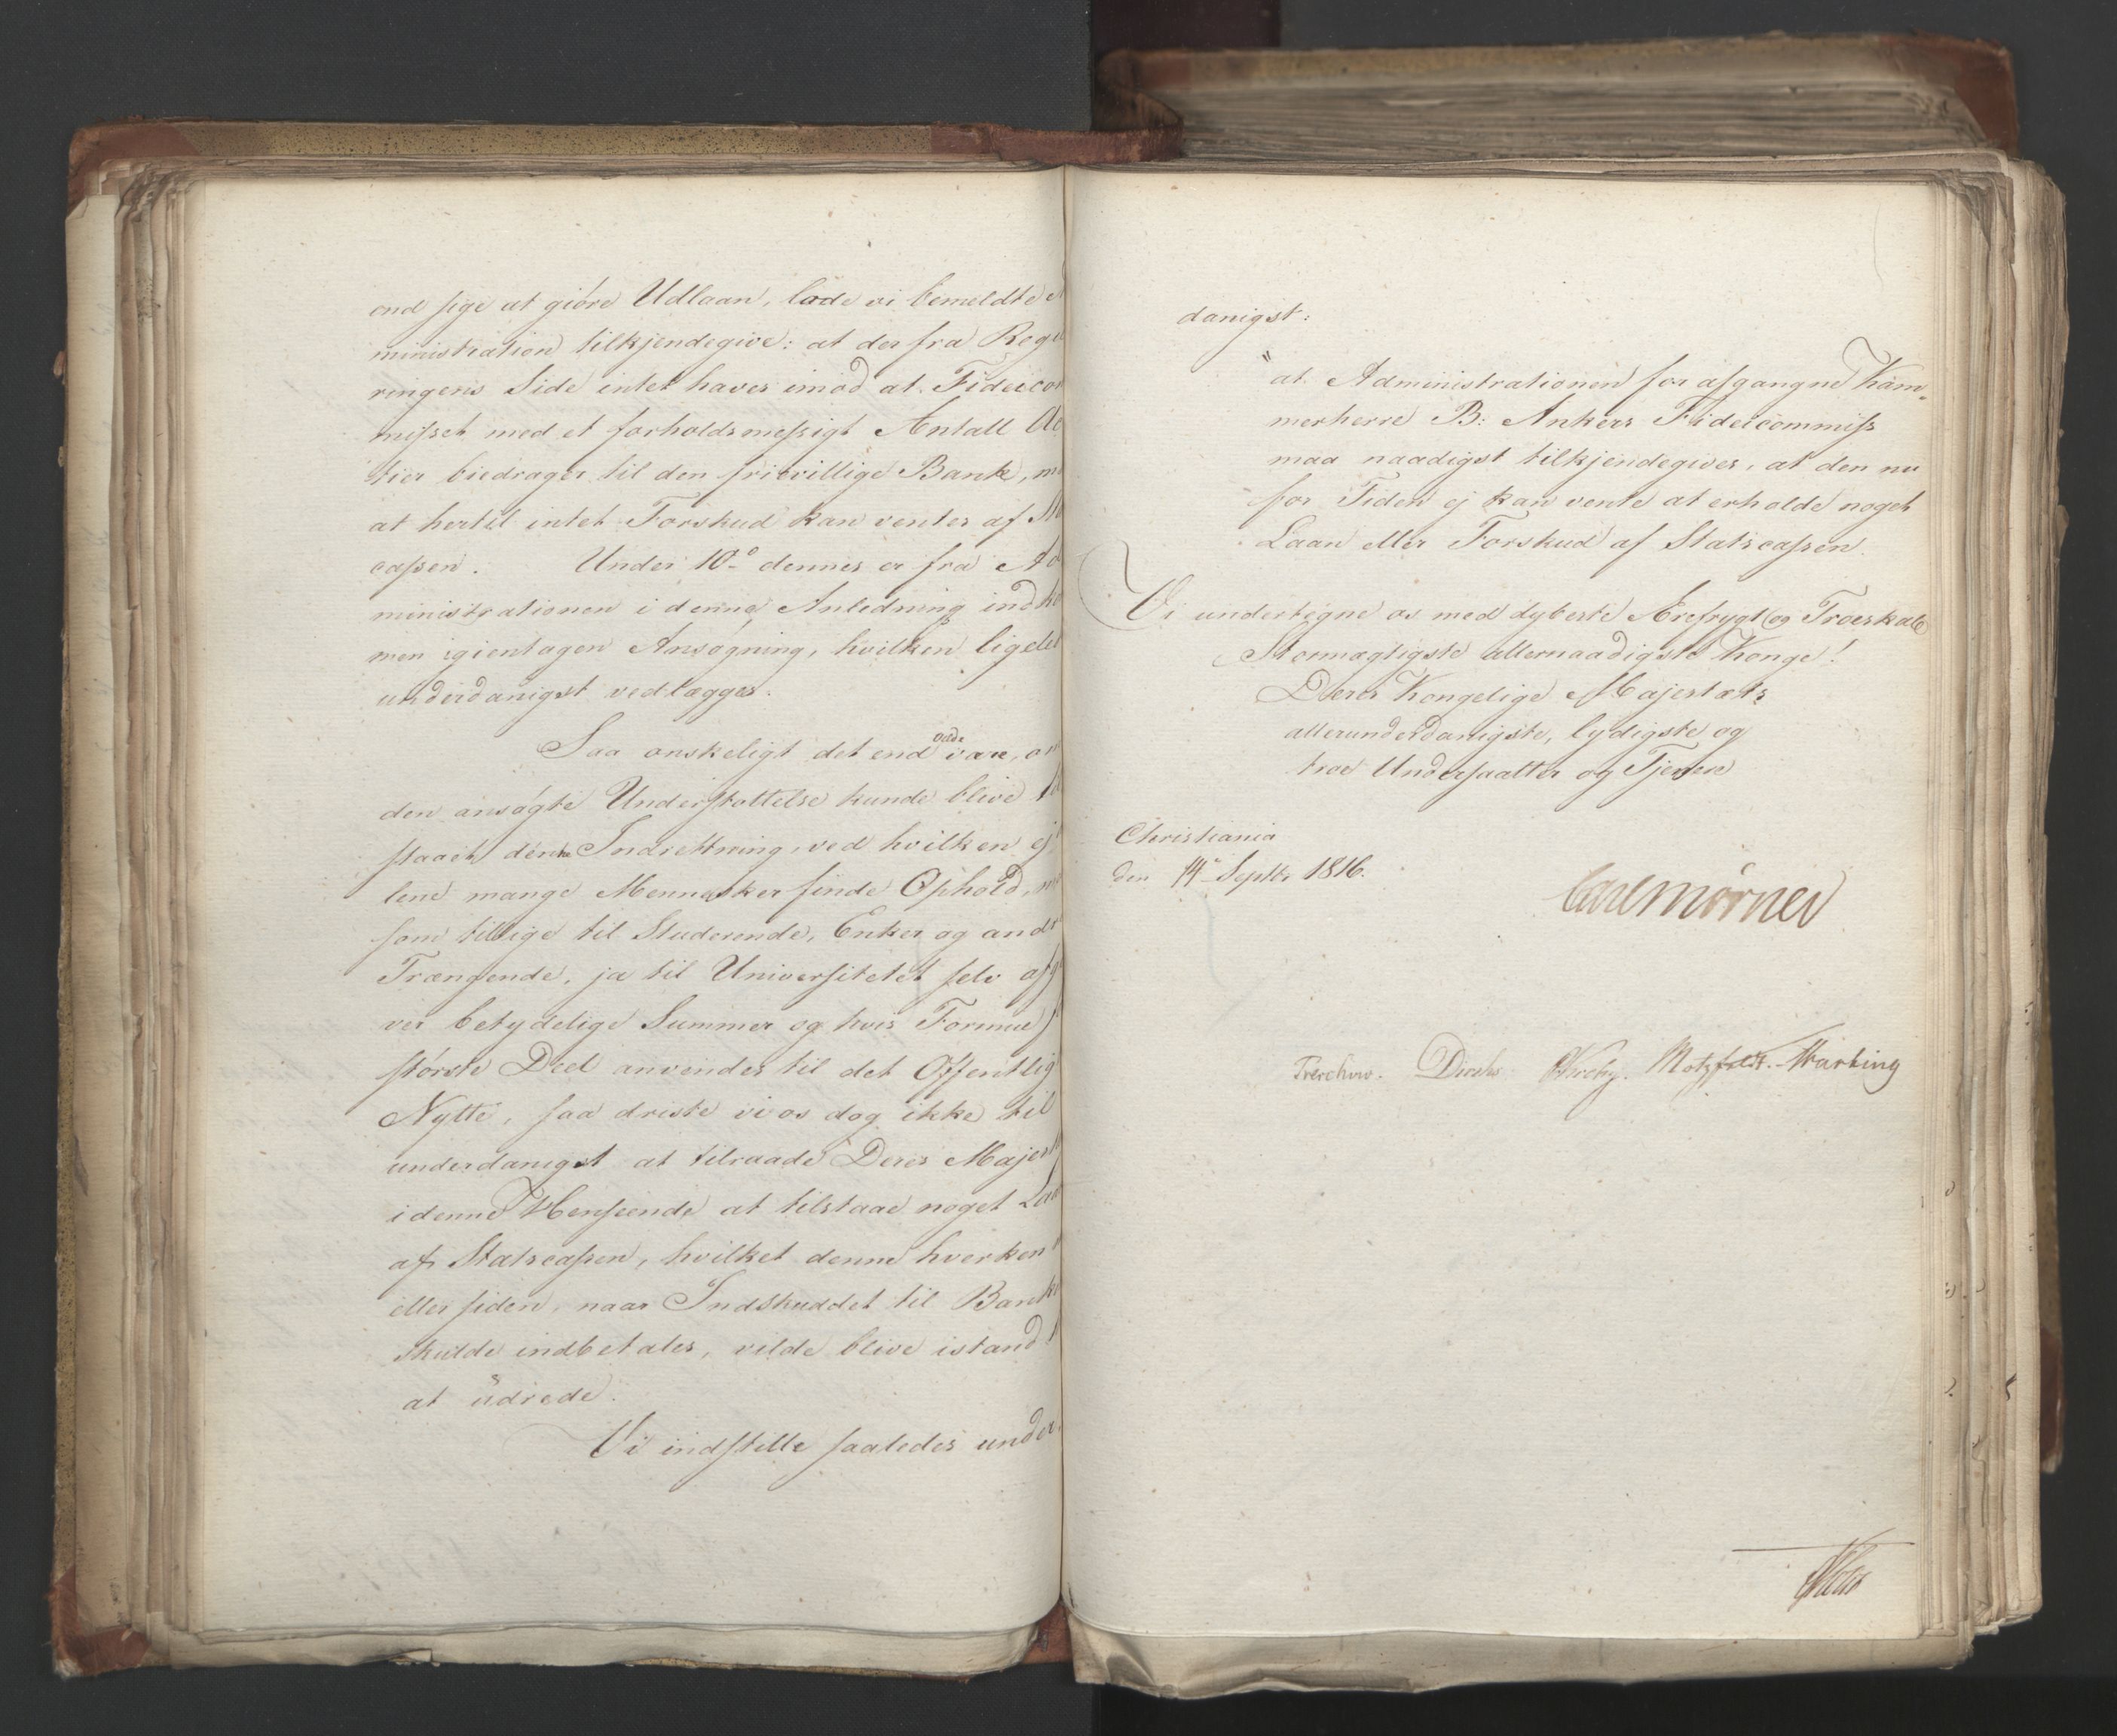 end sige at giöre Udlaan, lode vi bemeldte
ministration tilkjendegive: at der fra Rege
ringens Side intet haves imod at Fideicom
misset med et forholdsmessigt Antall Ac
tier biedrager til den frievillige Bank, m
at hertil intet Forskud kan ventes af St
cassen. Under 10de dennes er fra Ad
ministrationen i denne Anledning indko
men igientagen Ansøgning, hvilken ligele
underdanigst vedlægges.
Saa onskeligt det end vilde være, o
den ansøgte Understøttelse kunde blive til
staaet denne Indrettning, ved hvilken ej
lene mange Mennesker finde Ophold, m
som tillige til Studerende, Enker og andr
Trængende, ja til Universitetet selv afg
ver betydelige Summer og hvis Formue
störste Deel anvendes til det Offentlig
Nytte, saa driste vi os dog ikke til
underdanigst at tilraade Deres Majest
i denne Henseende at tilstaae noget Laa
af Statscassen, hvilket denne hverken
eller siden, naar Indskuddet til Bank
skulde indbetales, vilde blive istand
at udrede.
Vi indstille saaledes under
danigst:
" at Administrationen for afgangne Kam-
merherre B: Ankers Fideicommiss
maa naadigst tilkjendegives, at den nu
for Tiden ej kan vente at erholde noget
Laan eller Forskud af Statscassen.
Vi undertegne os med dybeste Ærefrygt og Troeskab
Stormægtigste allernaadigste Konge!
Deres Kongelige Majestæts
allerunderdanigste, lydigste og
troe Undersaatter og Tjenere
Christiania
den 14de Septbr 1816.
Carl Mörner
Treschow. Diriks Krebs. Motzfeldt.